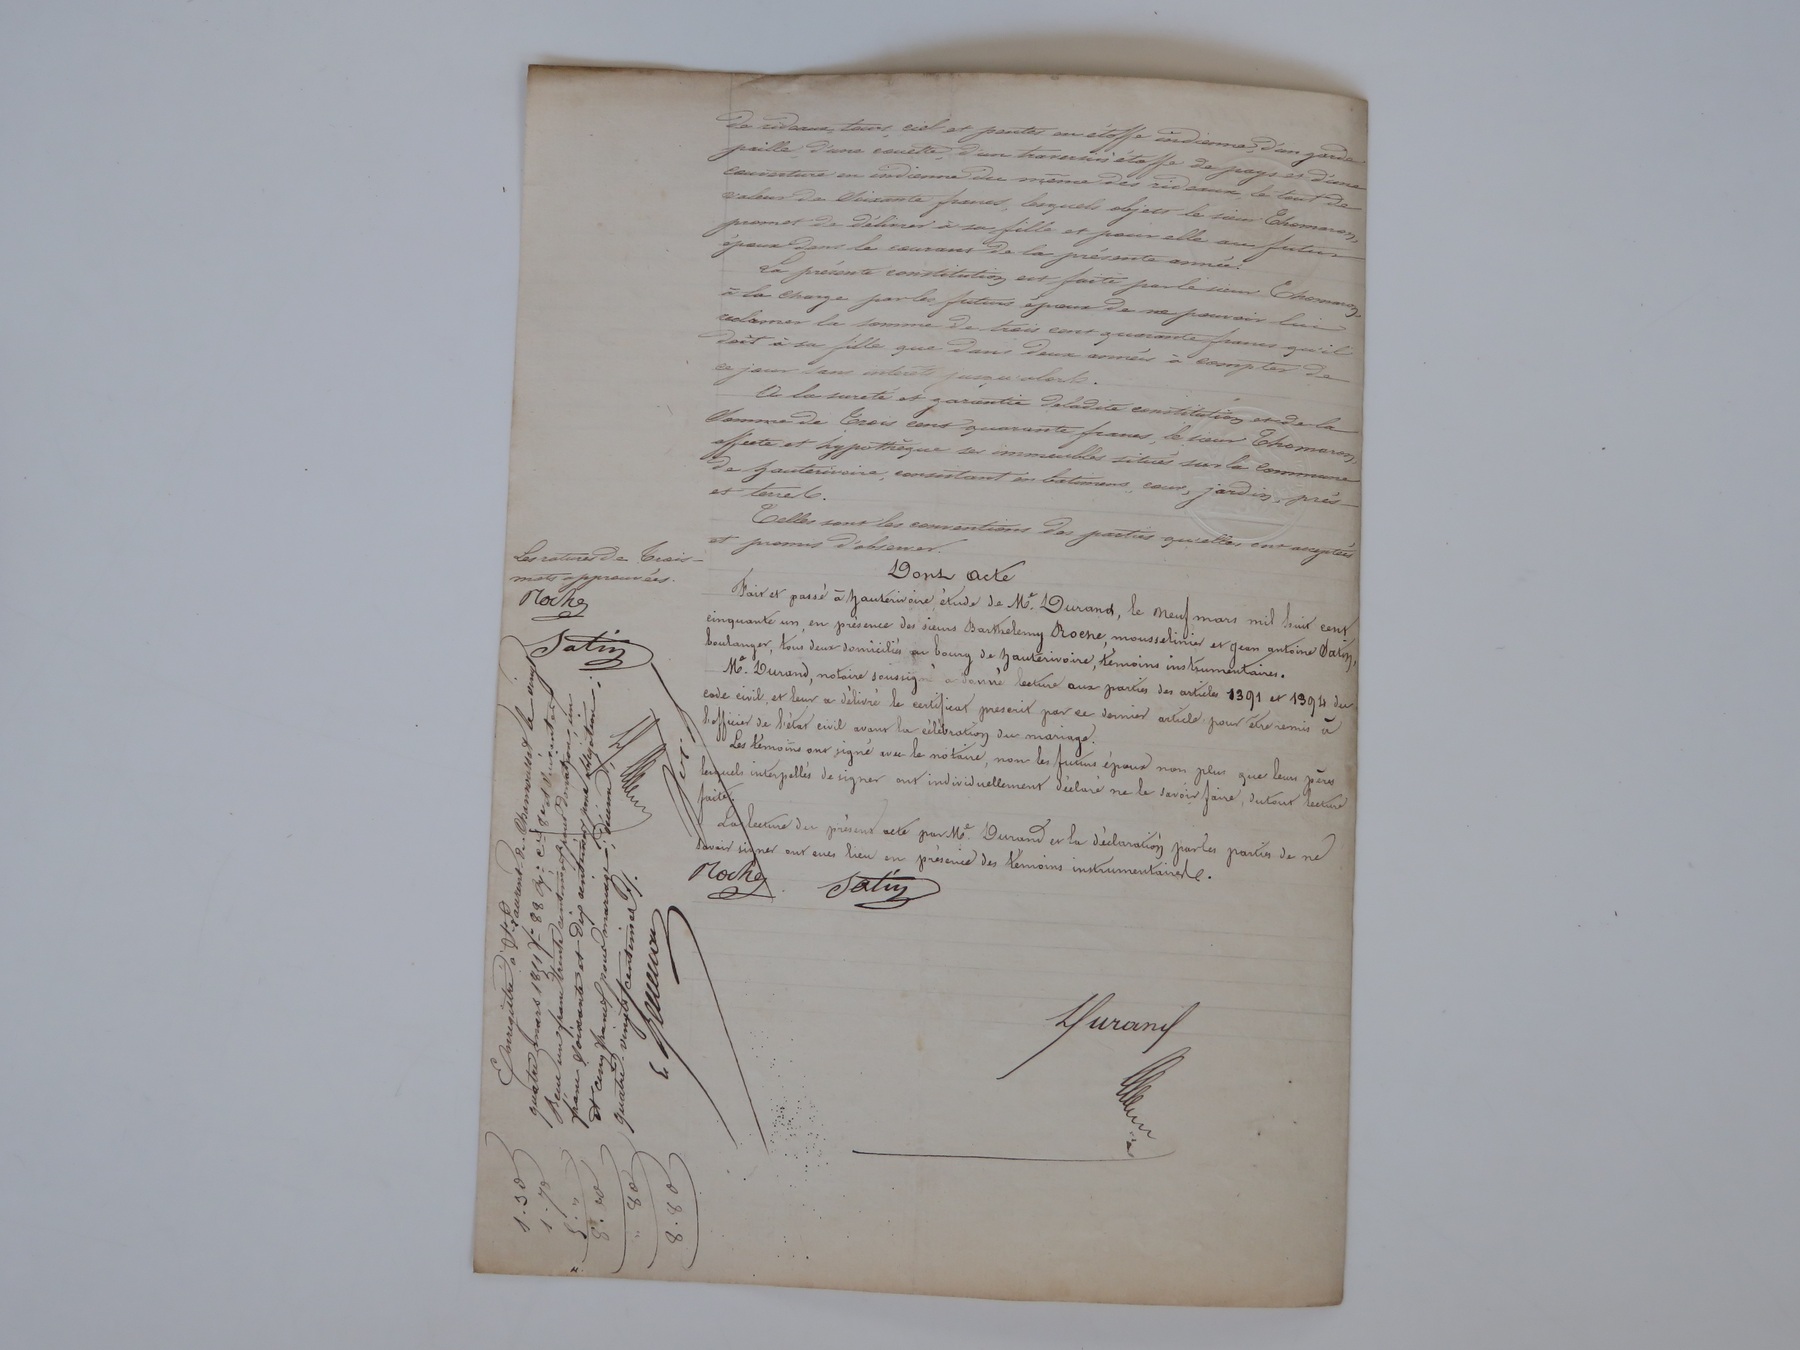 de rideaux, tours, ciel et pentes en étoffe indienne, d'un garde
paille, d'une couette, d'un traversin étoffe de pays et d'une
couverture en indienne du même des rideaux, le tout de
valeur de soixante francs, lesquels objets le sieur Thomaron,
promet de délivrer à sa fille et pour elle au futur
époux dans le courant de la présente année.
La présente constitution est faite par le sieur Thomaron,
à la charge par les futurs époux de ne pouvoir lui
réclamer la somme de trois cent quarante francs qu'il
doit à sa fille que dans deux années à compter de
ce jour sans intérêts jusqu'alors.
A la sureté et garantie de ladite constitution et de la
somme de Trois cent quarante francs, le sieur Thomaron,
affecte et hypothèque ses immeubles situés sur la commune
de hauterivoire, consistant en batimens, cour, jardin, prés
et terres.
Telles sont les conventions des parties qu'elles ont acceptées
et promis d'observer.
Dont acte
Fait et passé à hauterivoire, étude de Me. Durand, le neuf mars mil huit cent
cinquante un, en présence des sieurs Barthelemy Roche, mousselinier et Jean antoine Satin,
boulanger, tous deux domiciliés au bourg de hauterivoire, témoins instrumentaires.
Me. Durand, notaire soussigné a donné lecture aux parties des articles 1391 et 1394 du
code civil, et leur a délivré le certificat prescrit par ce dernier article pour être remis à
l'officier de l'état civil avant la célébration du mariage.
Les témoins ont signé avec le notaire, non les futurs époux non plus que leurs pères
lesquels interpellés de signer ont individuellement déclaré ne le savoir faire, du tout lecture
faite.
La lecture du présent acte par Me. Durand et la déclaration par les parties de ne
savoir signer ont eues lieu en présence des témoins instrumentaires.
Roche
Satin
Durand
Les ratures de Trois
mots approuvées.
Roche
Satin
Enregistré à St. Laurent de Chamousset le vingt
quatre mars 1851 fo 88
Reçu un franc trente centimes pour donation, un
franc soixante et dix centimes pour obligation
et cinq francs pour mariage, décime
quatre-vingts centimes
1.30
1.70
5."
8.00
" 80
8.80